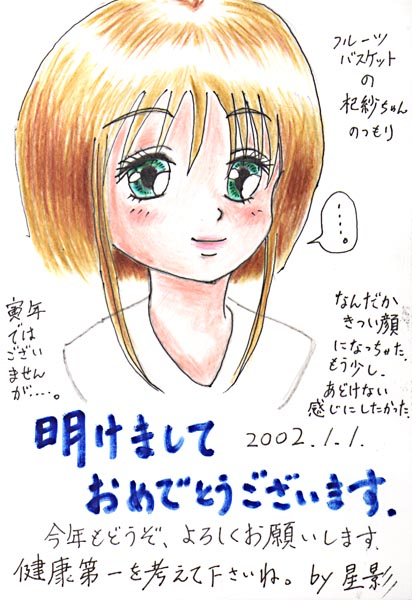 フルーツ
バスケット
の
杞紗ちゃん
のつもり
……。
寅年
では
ござい
ません
が….。
なんだか
きつい顔
になっちゃた。
もう少し、
あどけない
感じにしたかった。
明けまして
2002.1.1.
おめでとうございます.
今年もどうぞ、よろしくお願いします.
健康第一を考えて下さいね。by 星影